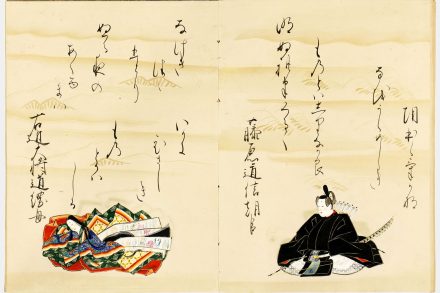 藤原道信朝臣
明ぬれはくるゝ
ものとはしりなから
なほうらめしき
朝ほらけかな
右大将道綱母
なけき
つゝ
ひとり
ぬる夜の
あくる
まは
いかに
ひさしき
もの
とかは
しる